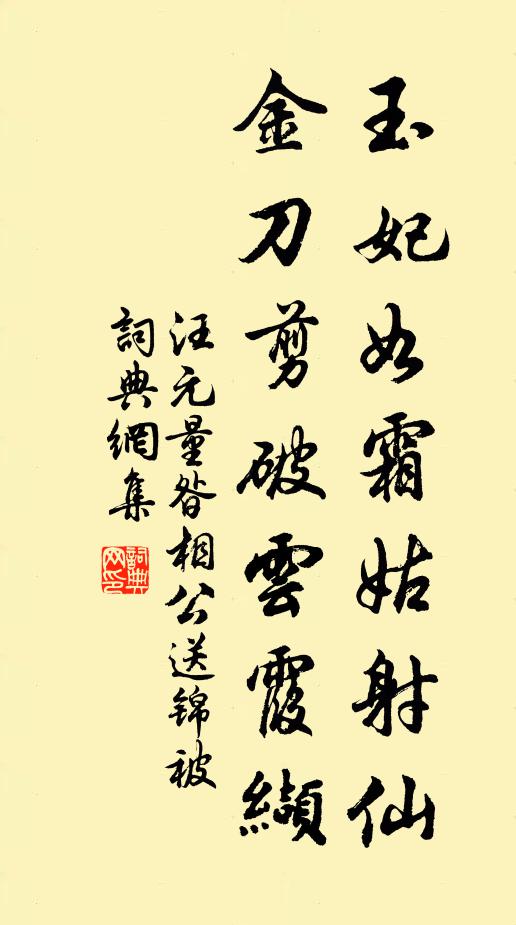 玉妃如霜姑射仙
金刀剪破雲霞纈
汪元量昝相公送錦被
詞典網集
詞典网印